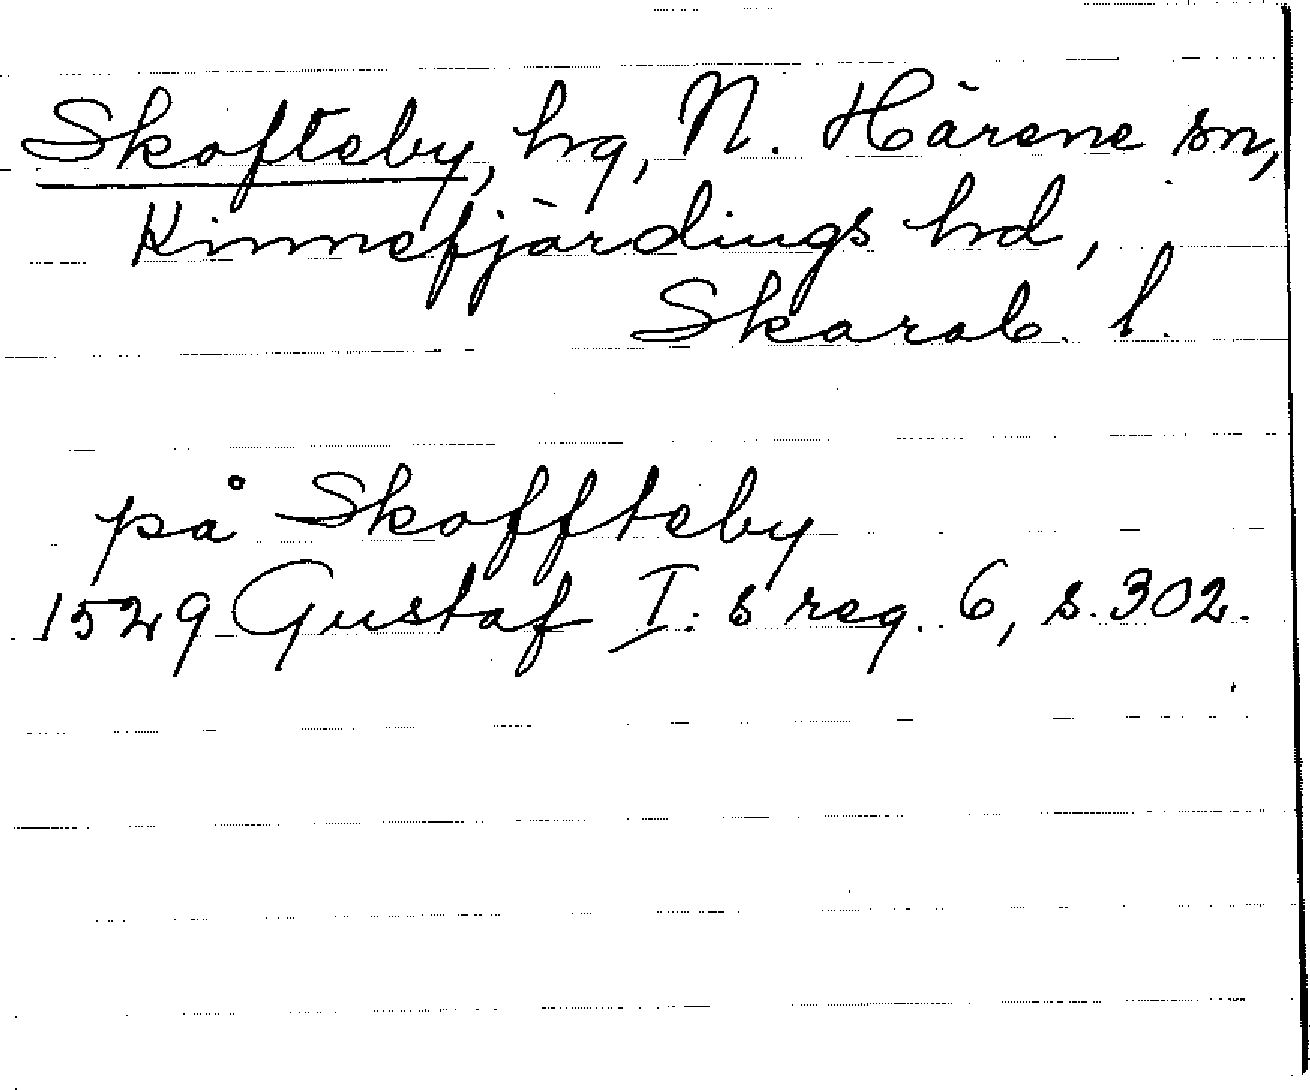 Skofteby, hg, N. Härene sn,
Kinnefjärdings hd,
Skarab. l.
på Skoffteby
1529 Gustaf I:s reg. 6, s. 302.